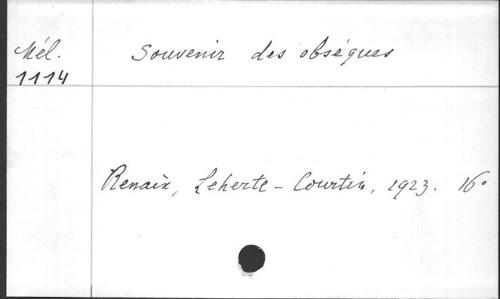 Mél.
1114
Souvenir des obséques
Renaix, Leherte-Courtin, 1923. 16°